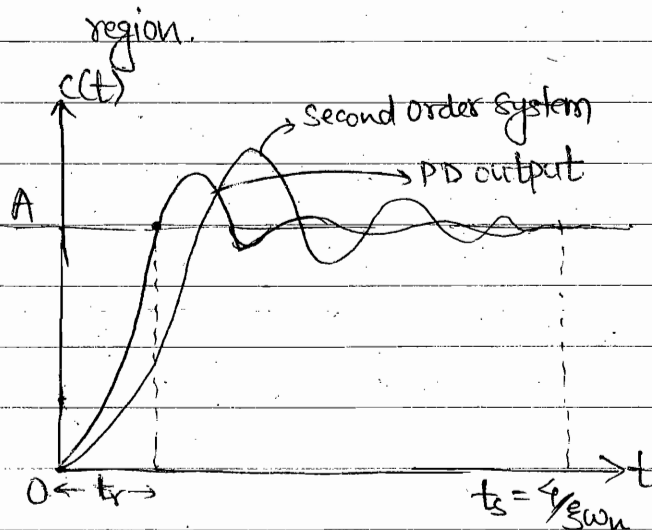 region.
c(t)
second order system
PD output
A
0 ← tr → ts = 4/ξωn t